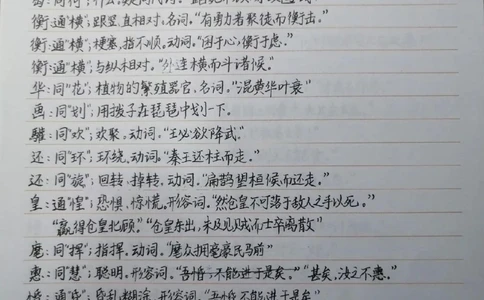 衡:通"横";跟竖直相对,名词。"有勇力者聚徒而衡击。"
衡:通"横";梗塞,指不顺。动词。"困于心,衡于虑。"
衡:通"横";与纵相对。"外连横而斗诸侯。"
华:同"花";植物的繁殖器官,名词。"混黄华叶衰"
画:同"划";用拨子在琵琶中划一下。
驩:同"欢";欢聚,动词。"王必欲降武"
还:同"环";环绕,动词。"秦王还柱而走。"
还:同"旋";回转,掉转,动词。"扁鹊望桓侯而还走。"
皇:通"惶";恐惧,惊慌。形容词。"然仓皇不可落于敌人之手以死。"
"赢得仓皇北顾。""仓皇东出,未及见贼而士卒离散"
麾:同"挥";指挥,动词。"麾众拥豪民马前"
惠:同"慧";聪明,形容词。"甚矣,汝之不惠。"
惛:通"昏";昏乱糊涂,形容词。"吾惛,不能进于是矣"